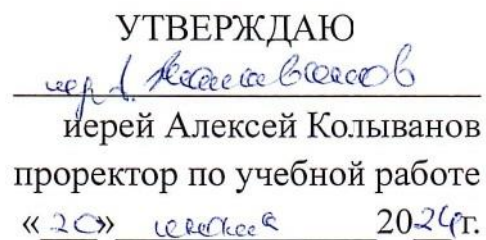 УТВЕРЖДАЮ
иер. А. Колыванов
иерей Алексей Колыванов
проректор по учебной работе
«20» 2024г.